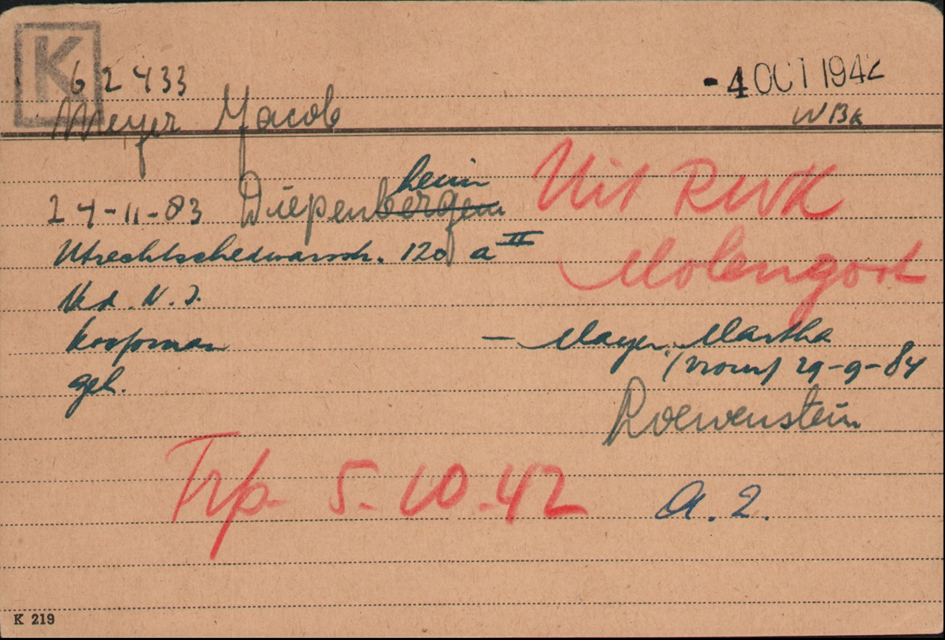 K
62433
- 4 OCT 1942
Meyer Jacob
WBK
24-11-83 Diepenbergem heim
Uit RWK
Utrechtschedwarsstr. 120 a II
Molengoot
Ned. N.I.
koopman
- Mayer, Martha
geh.
(vrouw) 29-9-84
Loewenstein
Trp. 5-10-42
A. 2.
K 219